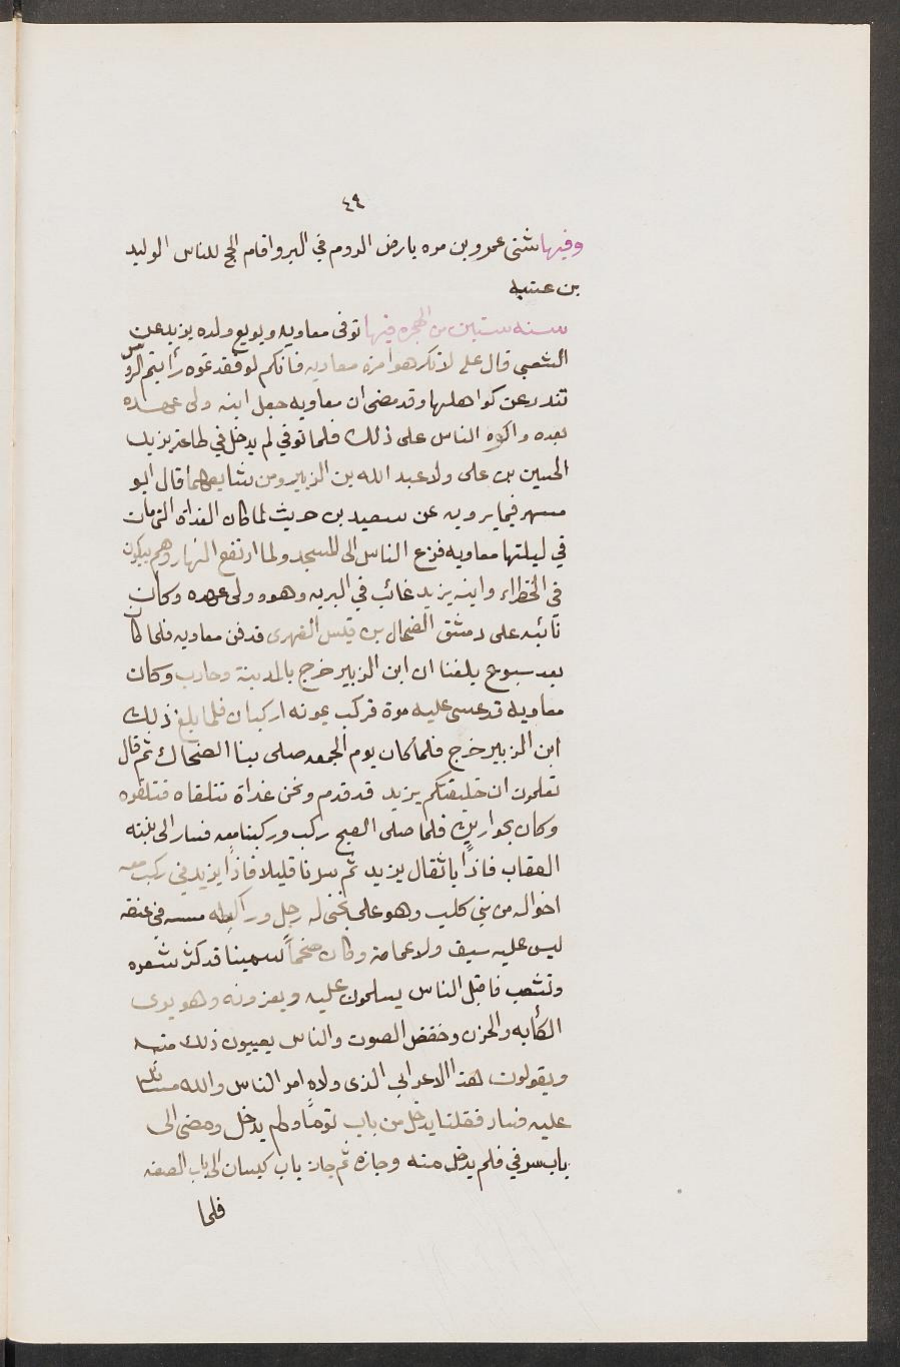 ٤٩
وفيها شتى عمرو بن مره بارض الروم في البر واقام الحج للناس الوليد
بن عتبه
سنه ستين من الهجره فيها توفى معاويه وبويع ولده يزيد عن
الشعبي قال علي لا تكرهوا امرة معاويه فانكم لو فقدتموه رأيتم الروس
تندر عن كواهلها وقد مضى ان معاويه جعل ابنه ولى عهده
بعده واكره الناس على ذلك فلما توفي لم يدخل في طاعة يزيد
الحسين بن على ولا عبد الله بن الزبير ومن شايعهما قال ابو
مسهر فيما يرويه عن سعيد بن حريث لما كان الغداه التي مات
في ليلتها معاويه فزع الناس الى المسجد ولما ارتفع النهار وهم يبكون
في الخظراء وابنه يزيد غائب في البريه وهو ولى عهده وكان
نائبه على دمشق الضحاك بن قيس الفهرى فدفن معاويه فلما كان
بعد سبوع بلغنا ان ابن الزبير خرج بالمدينة وحارب وكان
معاويه قد غشى عليه مرة فركب بموته الركبان فلما بلغ ذلك
ابن الزبير خرج فلما كان يوم الجمعه صلى بنا الضحاك ثم قال
تعلمون ان خليفتكم يزيد قد قدم ونحن غداة نتلقاه فتلقوه
وكان بحوارين فلما صلى الصبح ركب وركبنا معه فسار الى ثنيه
العقاب فاذا باثقال يزيد ثم سرنا قليلا فاذا يزيد في ركب معه
اخواله من بني كليب وهو على بختى له رحل ورائطه مسه في عنقه
ليس عليه سيف ولا عمامة وكان ضخماً سمينا قد كثر شعره
وتشعب فاقبل الناس يسلمون عليه ويعزونه وهو يرى
الكأبه والحزن وخفض الصوت والناس يعيبون ذلك منه
ويقولون هذا الاعرابي الذى ولاه امر الناس والله سائله
عليه فسار فقلنا يدخل من باب توما ولم يدخل ومضى الى
باب سرقي فلم يدخل منه وجازه ثم جاز باب كيسان الى باب الصغه
فلما